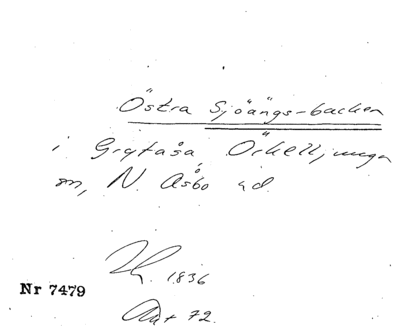 Östra Sjöängs-backen
i Grytåsa, Örkelljunga
sn, N. Åsbo hd.
1836
Nr 7479
72.